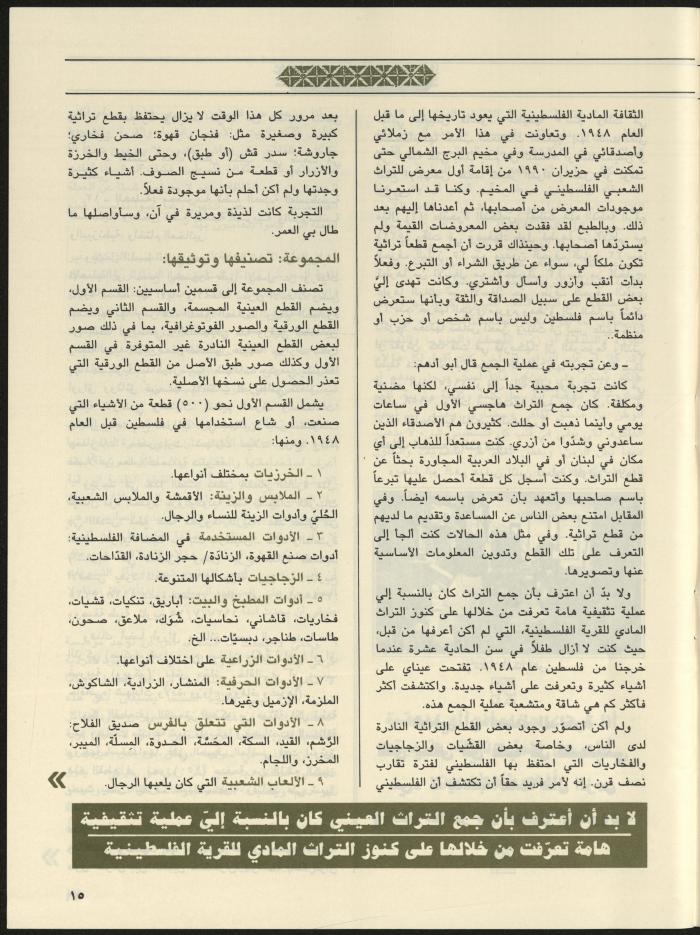 الثقافة المادية الفلسطينية التي يعود تاريخها إلى ما قبل
العام ١٩٤٨. وتعاونت في هذا الأمر مع زملائي
وأصدقائي في المدرسة وفي مخيم البرج الشمالي حتى
تمكنت في حزيران ١٩٩٠ من إقامة أول معرض للتراث
الشعبي الفلسطيني في المخيم. وكنا قد استعرنا
موجودات المعرض من أصحابها، ثم أعدناها إليهم بعد
ذلك. وبالطبع لقد فقدت بعض المعروضات القيمة ولم
يستردّها أصحابها. وحينذاك قررت أن أجمع قطعاً تراثية
تكون ملكاً لي، سواء عن طريق الشراء أو التبرع. وفعلاً
بدأت أنقب وأزور وأسأل وأشتري. وكانت تهدى إليّ
بعض القطع على سبيل الصداقة والثقة وبأنها ستعرض
دائماً باسم فلسطين وليس باسم شخص أو حزب أو
منظمة..
ـ وعن تجربته في عملية الجمع قال أبو أدهم:
كانت تجربة محببة جداً إلى نفسي، لكنها مضنية
ومكلفة. كان جمع التراث هاجسي الأول في ساعات
يومي وأينما ذهبت أو حللت. كثيرون هم الأصدقاء الذين
ساعدوني وشدّوا من أزري. كنت مستعداً للذهاب إلى أي
مكان في لبنان أو في البلاد العربية المجاورة بحثاً عن
قطع التراث. وكنت أسجل كل قطعة أحصل عليها تبرعاً
باسم صاحبها وأتعهد بأن تعرض باسمه أيضاً. وفي
المقابل امتنع بعض الناس عن المساعدة وتقديم ما لديهم
من قطع تراثية. وفي مثل هذه الحالات كنت ألجأ إلى
التعرف على تلك القطع وتدوين المعلومات الأساسية
عنها وتصويرها.
ولا بدّ أن اعترف بأن جمع التراث كان بالنسبة إلي
عملية تثقيفية هامة تعرفت من خلالها على كنوز التراث
المادي للقرية الفلسطينية، التي لم أكن أعرفها من قبل،
حيث كنت لا أزال طفلاً في سن الحادية عشرة عندما
خرجنا من فلسطين عام ١٩٤٨. تفتحت عيناي على
أشياء كثيرة وتعرفت على أشياء جديدة. واكتشفت أكثر
فأكثر كم هي شاقة ومتشعبة عملية الجمع هذه.
ولم أكن أتصوّر وجود بعض القطع التراثية النادرة
لدى الناس، وخاصة بعض القشّيات والزجاجيات
والفخاريات التي احتفظ بها الفلسطيني لفترة تقارب
نصف قرن. إنه لأمر فريد حقاً أن تكتشف أن الفلسطيني
بعد مرور كل هذا الوقت لا يزال يحتفظ بقطع تراثية
كبيرة وصغيرة مثل: فنجان قهوة؛ صحن فخاري؛
جاروشة؛ سدر قش (أو طبق)، وحتى الخيط والخرزة
والأزرار أو قطعة من نسيج الصوف. أشياء كثيرة
وجدتها ولم أكن أحلم بأنها موجودة فعلاً.
التجربة كانت لذيذة ومريرة في آن، وسأواصلها ما
طال بي العمر.
المجموعة: تصنفيها وتوثيقها:
تصنف المجموعة إلى قسمين أساسيين: القسم الأول،
ويضم القطع العينية المجسمة، والقسم الثاني ويضم
القطع الورقية والصور الفوتوغرافية، بما في ذلك صور
لبعض القطع العينية النادرة غير المتوفرة في القسم
الأول وكذلك صور طبق الأصل من القطع الورقية التي
تعذر الحصول على نسخها الأصلية.
يشمل القسم الأول نحو (٥٠٠) قطعة من الأشياء التي
صنعت، أو شاع استخدامها في فلسطين قبل العام
١٩٤٨. ومنها:
١ ـ الخرزيات بمختلف أنواعها.
٢ ـ الملابس والزينة: الأقمشة والملابس الشعبية،
الحُليّ وأدوات الزينة للنساء والرجال.
٣ ـ الأدوات المستخدمة في المضافة الفلسطينية:
أدوات صنع القهوة، الزنادَة/ حجر الزنادة، القدّاحات.
٤ ـ الزجاجيات بأشكالها المتنوعة.
٥ ـ أدوات المطبخ والبيت: أباريق، تنكيات، قشيات،
فخاريات، قاشاني، نحاسيات، شُوَك، ملاعق، صحون،
طاسات، طناجر، دبسيّات... الخ.
٦ ـ الأدوات الزراعية على اختلاف أنواعها.
٧ ـ الأدوات الحرفية: المنشار، الزرادية، الشاكوش،
الملزمة، الإزميل وغيرها.
٨ ـ الأدوات التي تتعلق بالفرس صديق الفلاح:
الرَّشم، القيد، السكة، المحَسَّة، الحدوة، المِسلّة، الميبر،
المخرز، واللجام.
٩ ـ الألعاب الشعبية التي كان يلعبها الرجال.
»
لا بد أن أعترف بأن جمع التراث العيني كان بالنسبة إليّ عملية تثقيفية
هامة تعرّفت من خلالها على كنوز التراث المادي للقرية الفلسطينية
١٥